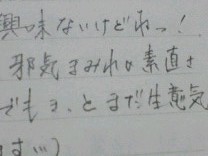 興味ないけどねっ!
邪気まみれな素直さ
でもょっとまだ生意気
ますい)